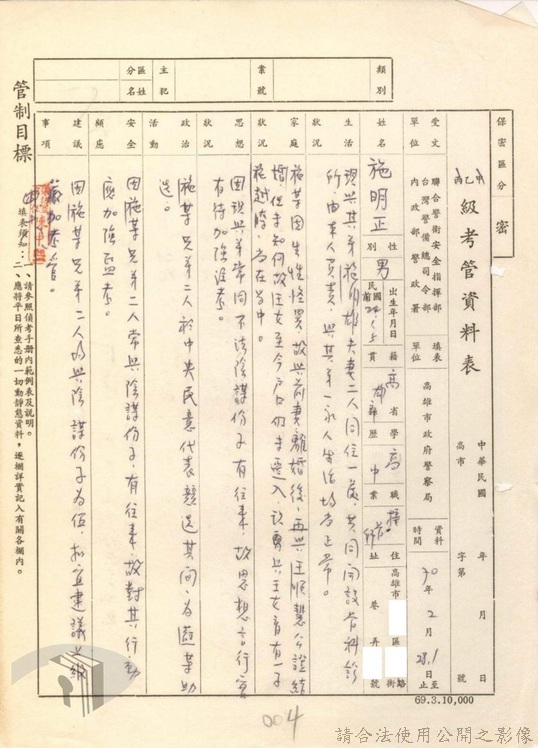 保密區分
密
甲乙丙級考管資料表
中華民國 年 月 日
高市 字第 號
受文單位
聯合警衛安全指揮部
台灣警備總司令部
內政部警政署
填表單位
高雄市政府警察局
資料時間
70年2月 日至 日止
類別
業號
主犯
區分
姓名
姓名
施明正
性別
男
出生年月日
民國 前
籍貫
高 省 雄
學歷
高中
職業
住址
高雄市 區 路街 巷 弄 號
生活狀況
現與其弟施明雄夫妻二人同住一處,共同開設骨科診所,由本人負責,與其弟一家人生活均屬正常。
家庭狀況
施某因生性怪異,故與前妻離婚後,再與王順慧公證結婚,但未知何故王女至今戶口仍未遷入,該男與王女育有一子施越騰,尚在 中。
思想狀況
因現與其弟常同不法陰謀份子有往來,故思想言行實有待加強 考。
政治活動
施某兄弟二人於中央民意代表競選其間,為 某助選。
安全顧慮
因施某兄弟二人常與陰謀份子有往來,故對其行動應加強監考。
建議事項
因施某兄弟二人為與陰謀份子為伍,擬宜建議 級 加考管。
管制目標
填表須知:
一、請參照偵考手冊內範例表及說明。
二、應將平日所查悉的一切動靜態資料,逐欄詳實記入有關各欄內。
69.3.10,000
004
請合法使用公開之影像